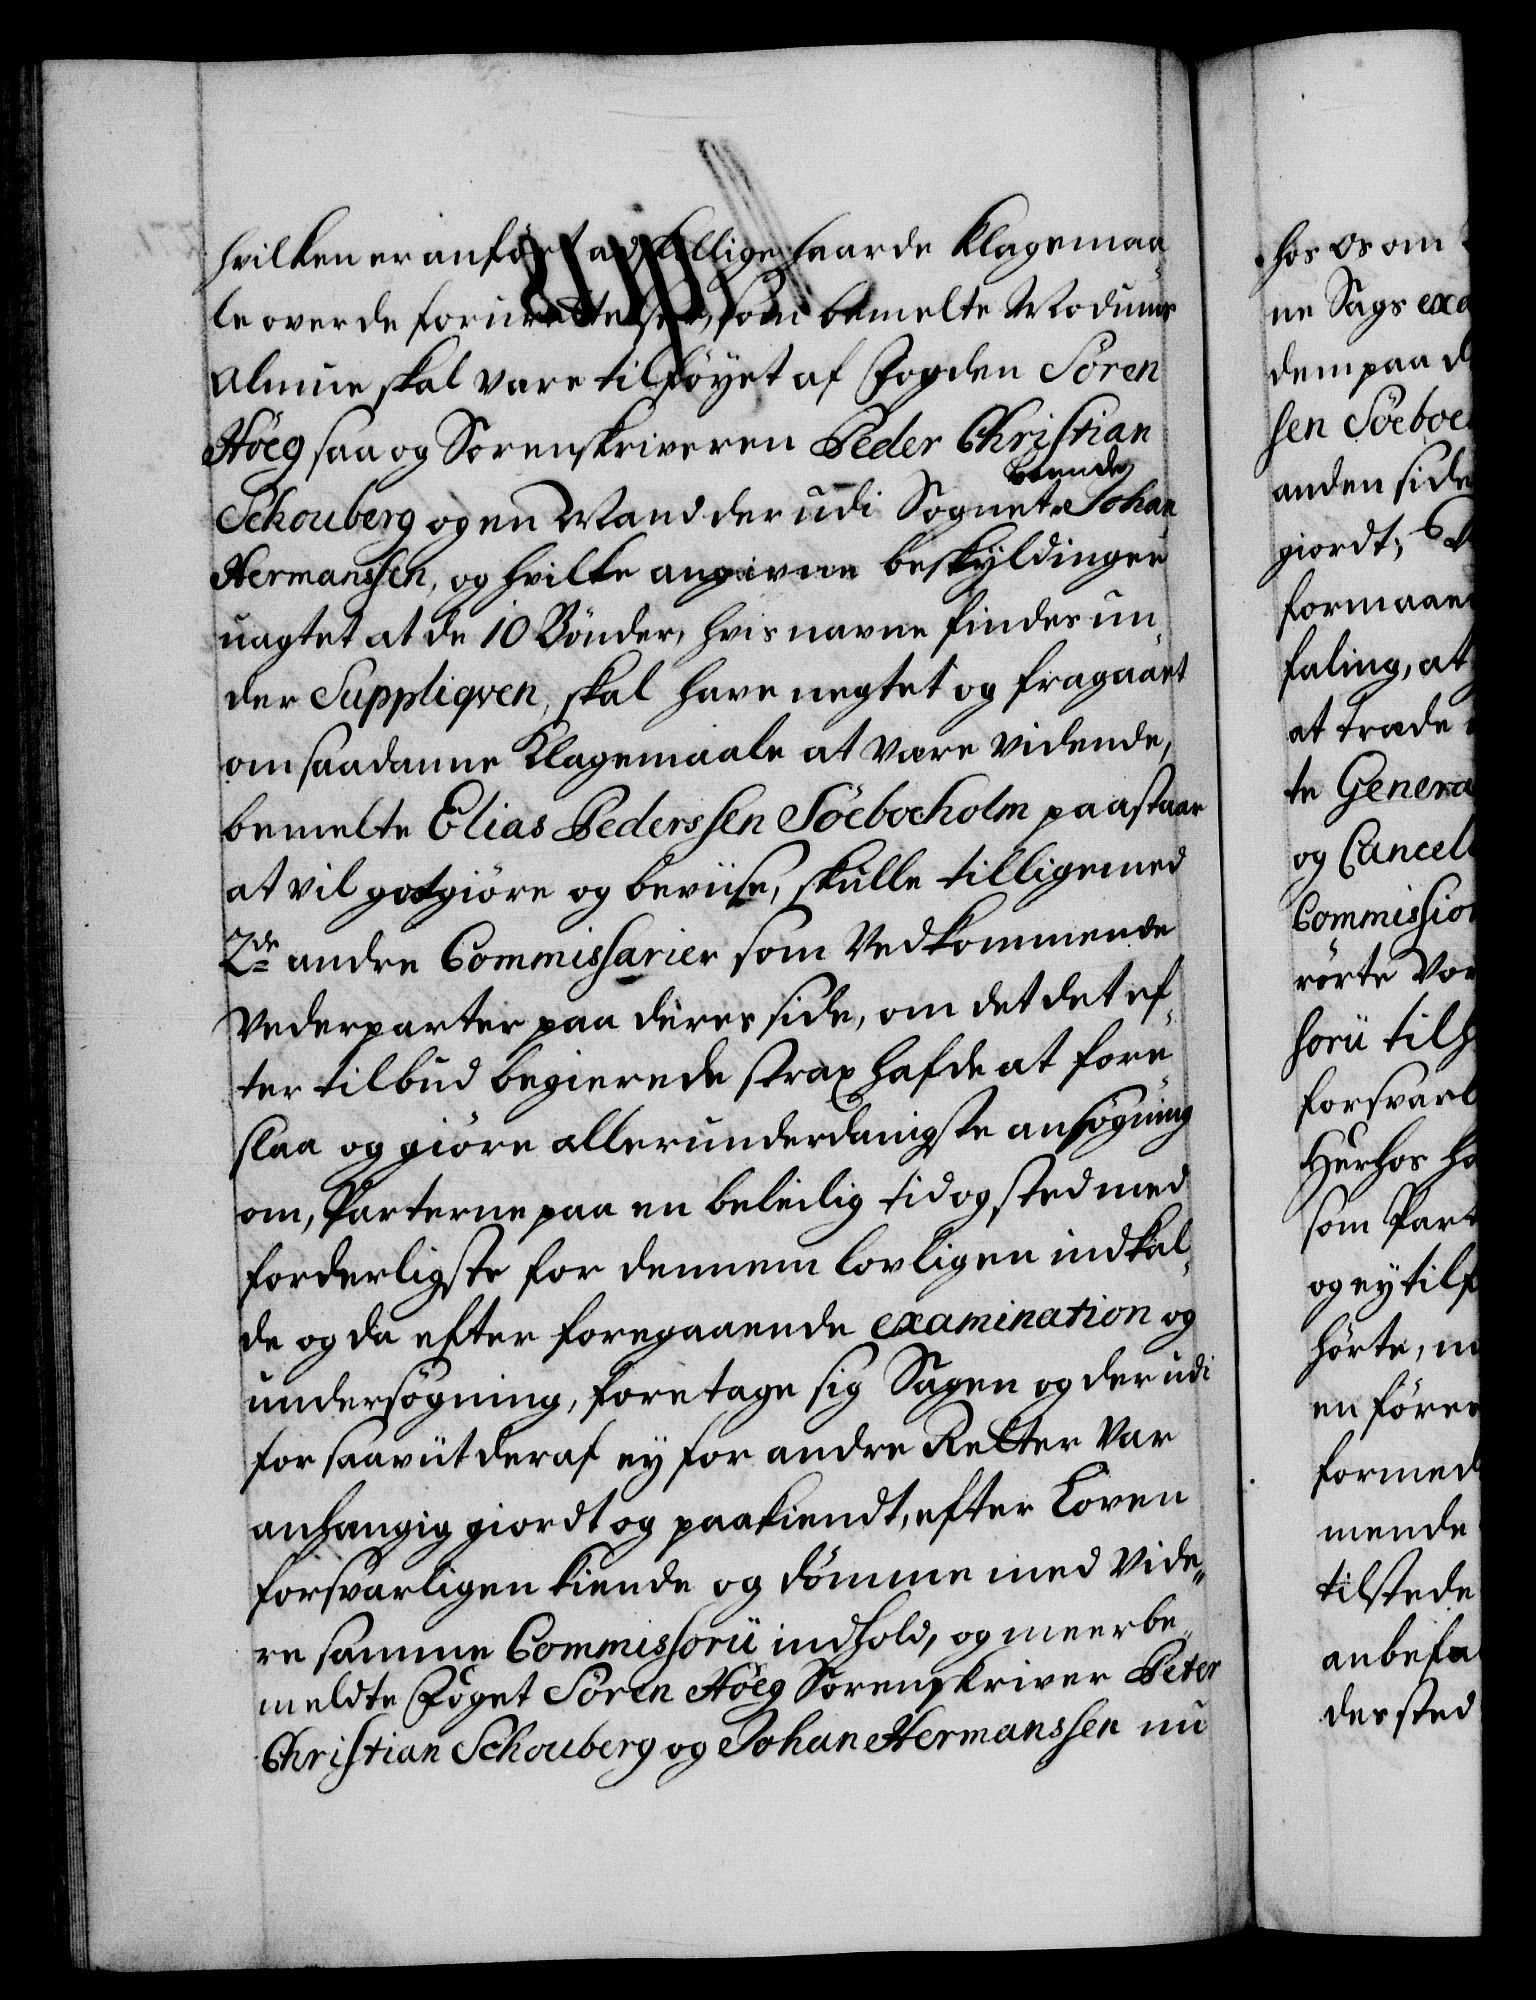 hvilken er anført adskillige haarde Klagemaa
le over de forurettelser, som bemelte Modums
Almue skal være tilføyet af Fogden Sören
Höeg saa og Sorenskriveren Peder Christian
boende
Schouberg og en Mand der udi Sognet Johan
Hermanssen, og hvilke angivne beskyldinger
uagtet at de 10 Bönder, hvis navne findes un¬
der Suppliqven, skal have negtet og fragaaet
om saadanne Klagemaale at være vidende,
bemelte Elias Pederssen Söeboeholm paastaar
at vil godtgiöre og beviise, skulle tilligemed
2de andre Commissarier som Vedkommende
Vederparter paa deres side, om det det ef¬
ter tilbud begierede strax hafde at fore
slaa og giöre allerunderdanigste ansögning
om, Parterne paa en beleilig tid og sted med
forderligste for dennem lovligen indkal¬
de og da efter foregaaende examination og
undersögning, foretage sig Sagen og der udi
for saavit deraf ey for andre Retter var
anhængig giordt og paakiendt, efter Loven
forsvarligen kiende og dömme med vide¬
re samme Commissorii indhold, og meerbe¬
meldte Foget Sören Höeg Sorenskriver Peter
Christian Schouberg og Johan Hermanssen nu
hos os om
ne Sags exa
dem paa d
sen Söeboe
anden side
giordt;
formaae
faling, at
at træde
te Genera
og Cancell
Commission
rörte Vor
sorii tilh
forsvarl
Herhos ha
som Part
og ey tilf
hörte, m
en före
formed
mende
tilstede
anbefa
der sted